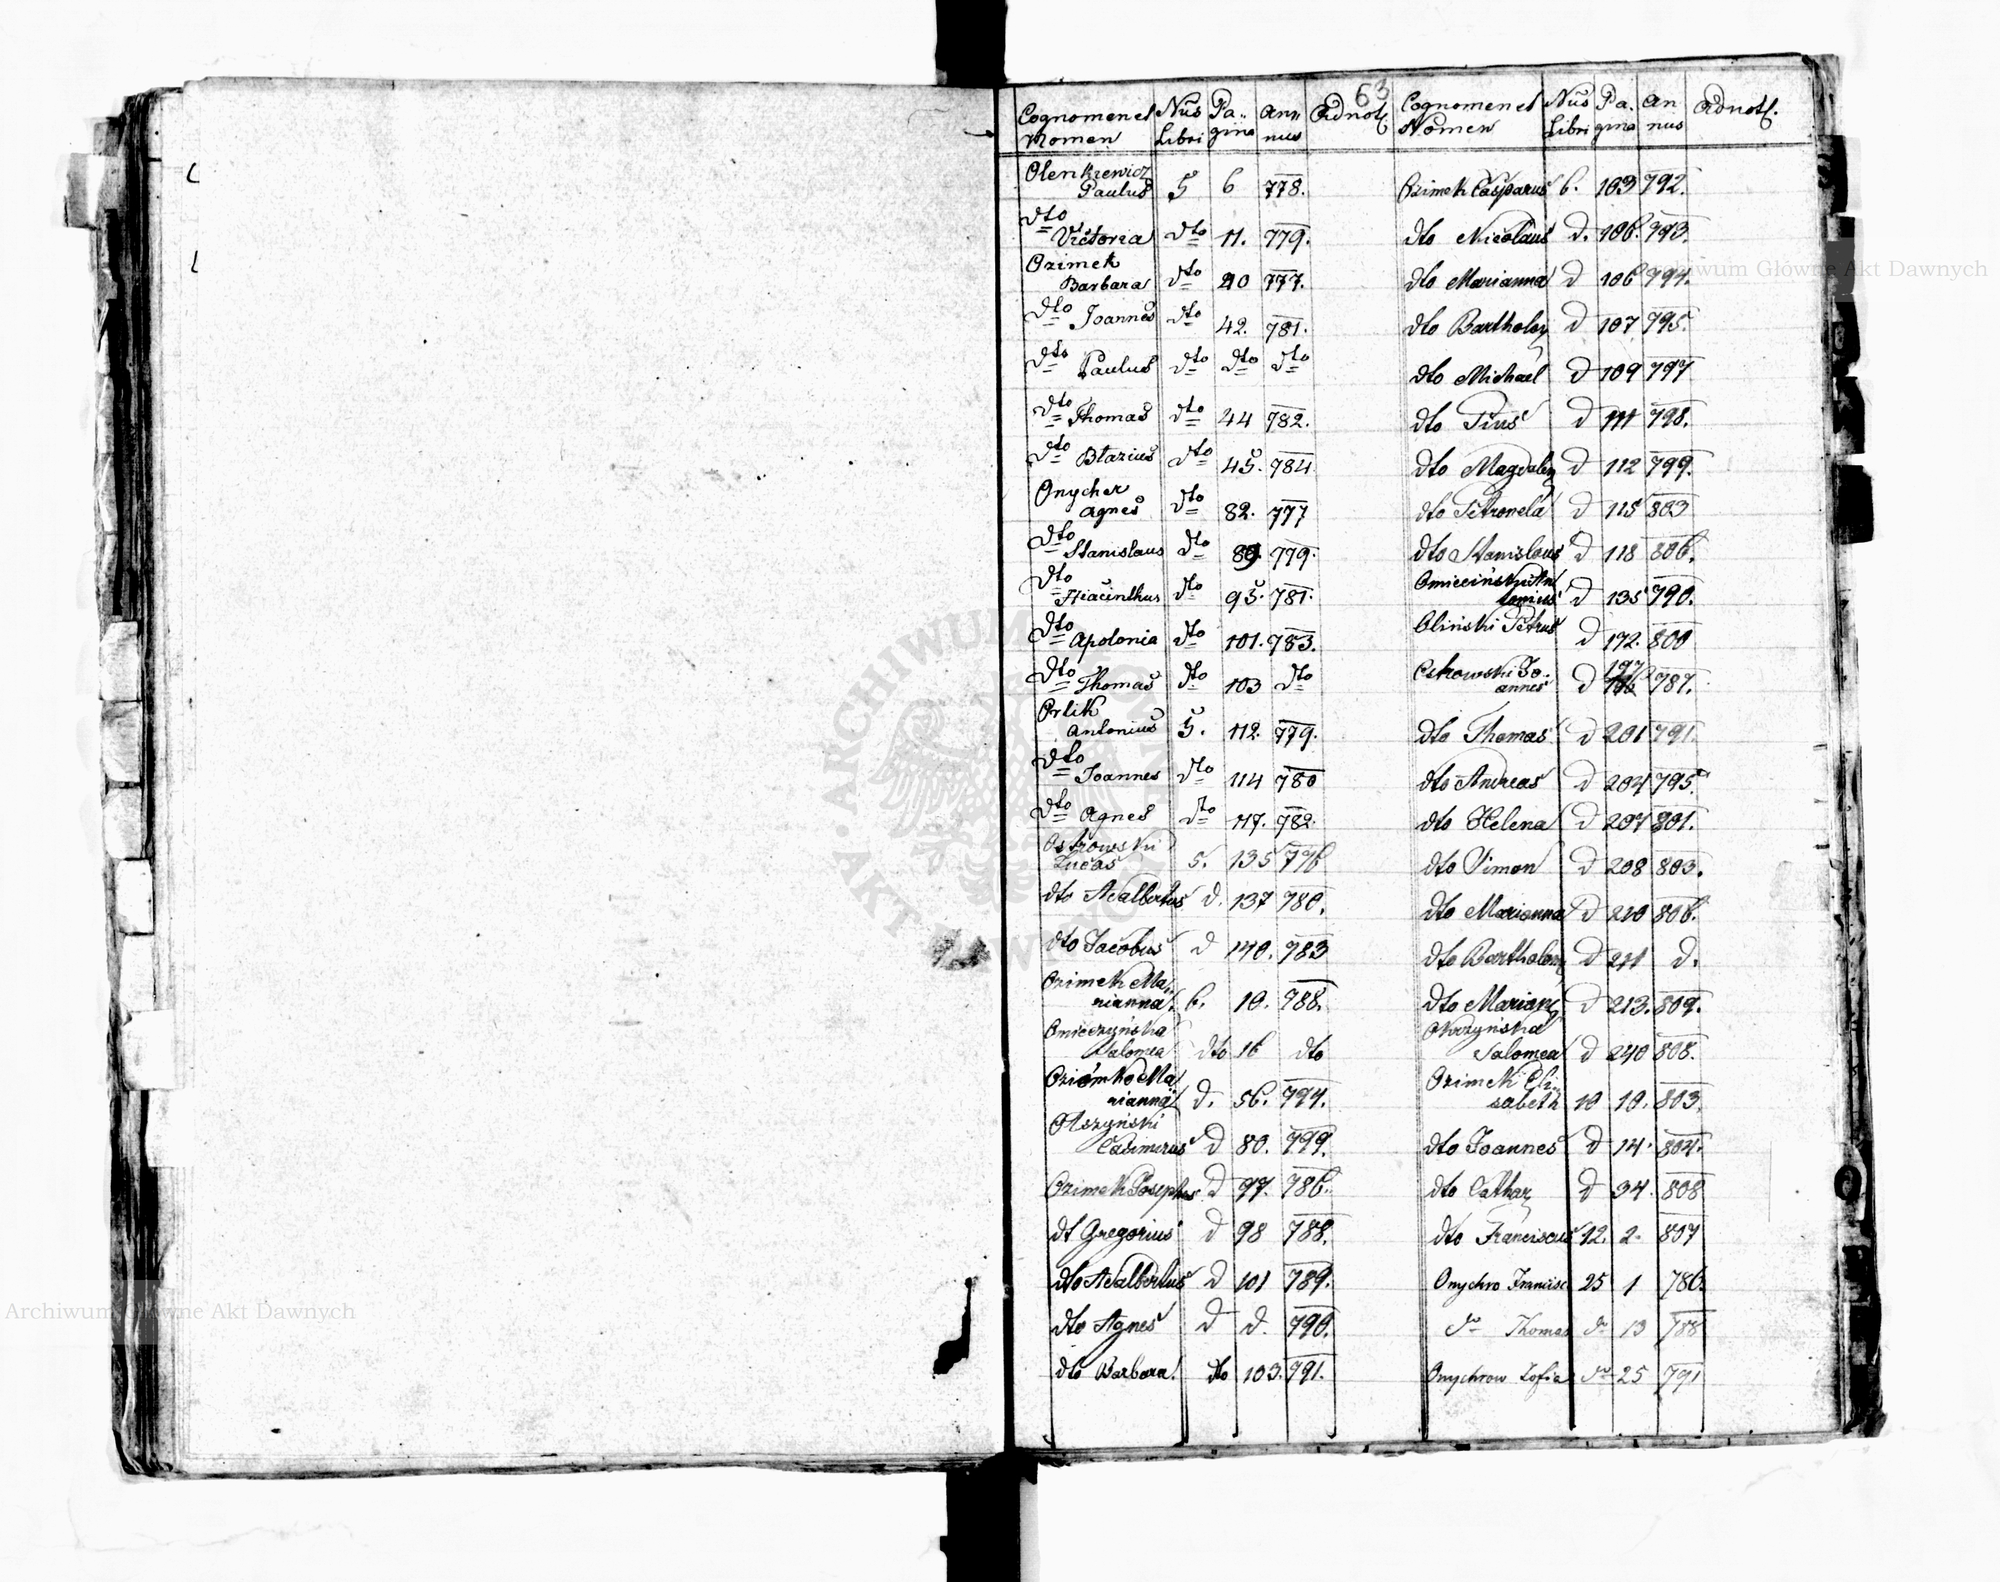 63
Cognomen et Nomen Nus Libri Pagina Annus Adnotf.
Olenkiewicz
Paulus 5 6 778.
dto Victoria dto 11. 779.
Ozimek
Barbara dto 20 777.
dto Joannes dto 42. 781.
dto Paulus dto dto dto
dto Thomas dto 44 782.
dto Blazius dto 45. 784
Onycher
Agnes dto 82. 777
dto Stanislaus dto 89. 779.
dto Hiacinthus dto 95. 781.
dto Apolonia dto 101. 783.
dto Thomas dto 103 dto
Orlik
Antonius 5. 112. 779.
dto Joannes dto 114 780
dto Agnes dto 117. 782.
Ostrowski
Lucas 5. 135 776
dto Adalbertus d. 137 780.
dto Jacobus d 140. 783
Ozimek Ma
rianna. 6. 10. 788.
Omieczynska
Salomea dto 16 dto
Oziomko Ma
rianna d. 56. 794.
Olszyński
Casimirus d 80. 799.
Ozimek Josephus d 97. 786.
dt Gregorius d 98 788.
dto Adalbertus d 101 789.
dto Agnes d d. 790.
dto Barbara. dto 103. 791.
Cognomen et Nomen Nus Libri Pagina Annus Adnotf.
Ozimek Casparus 6. 103 792.
dto Nicolaus d. 106. 793.
dto Marianna d 106 794.
dto Bartholom d 107 795.
dto Michael d 109 797
dto Pius d 111 798.
dto Magdalen d 112 799.
dto Petronela d 115 803
dto Stanislaus d 118 806.
Omieciński An
tonius d 135 790.
Oliński Petrus d 172. 800
Ostrowski Jo
annes d 197 787.
dto Thomas d 201 791.
dto Andreas d 204 795.
dto Helena d 207 801.
dto Simon d 208 803.
dto Marianna d 210 806.
dto Bartholom d 211 d.
dto Mariann d 213. 809.
Okrzyńska
Salomea d 240 808.
Ozimek Eli
sabeth 10 10. 803.
dto Joannes d 14. 804.
dto Cathar d 34. 808
dto Franciscus 12. 2. 807
Onychro Francisc 25 1 786.
do Thomas do 13 788
Onychrow Zofia do 25 791
Archiwum Główne Akt Dawnych
Archiwum Główne Akt Dawnych